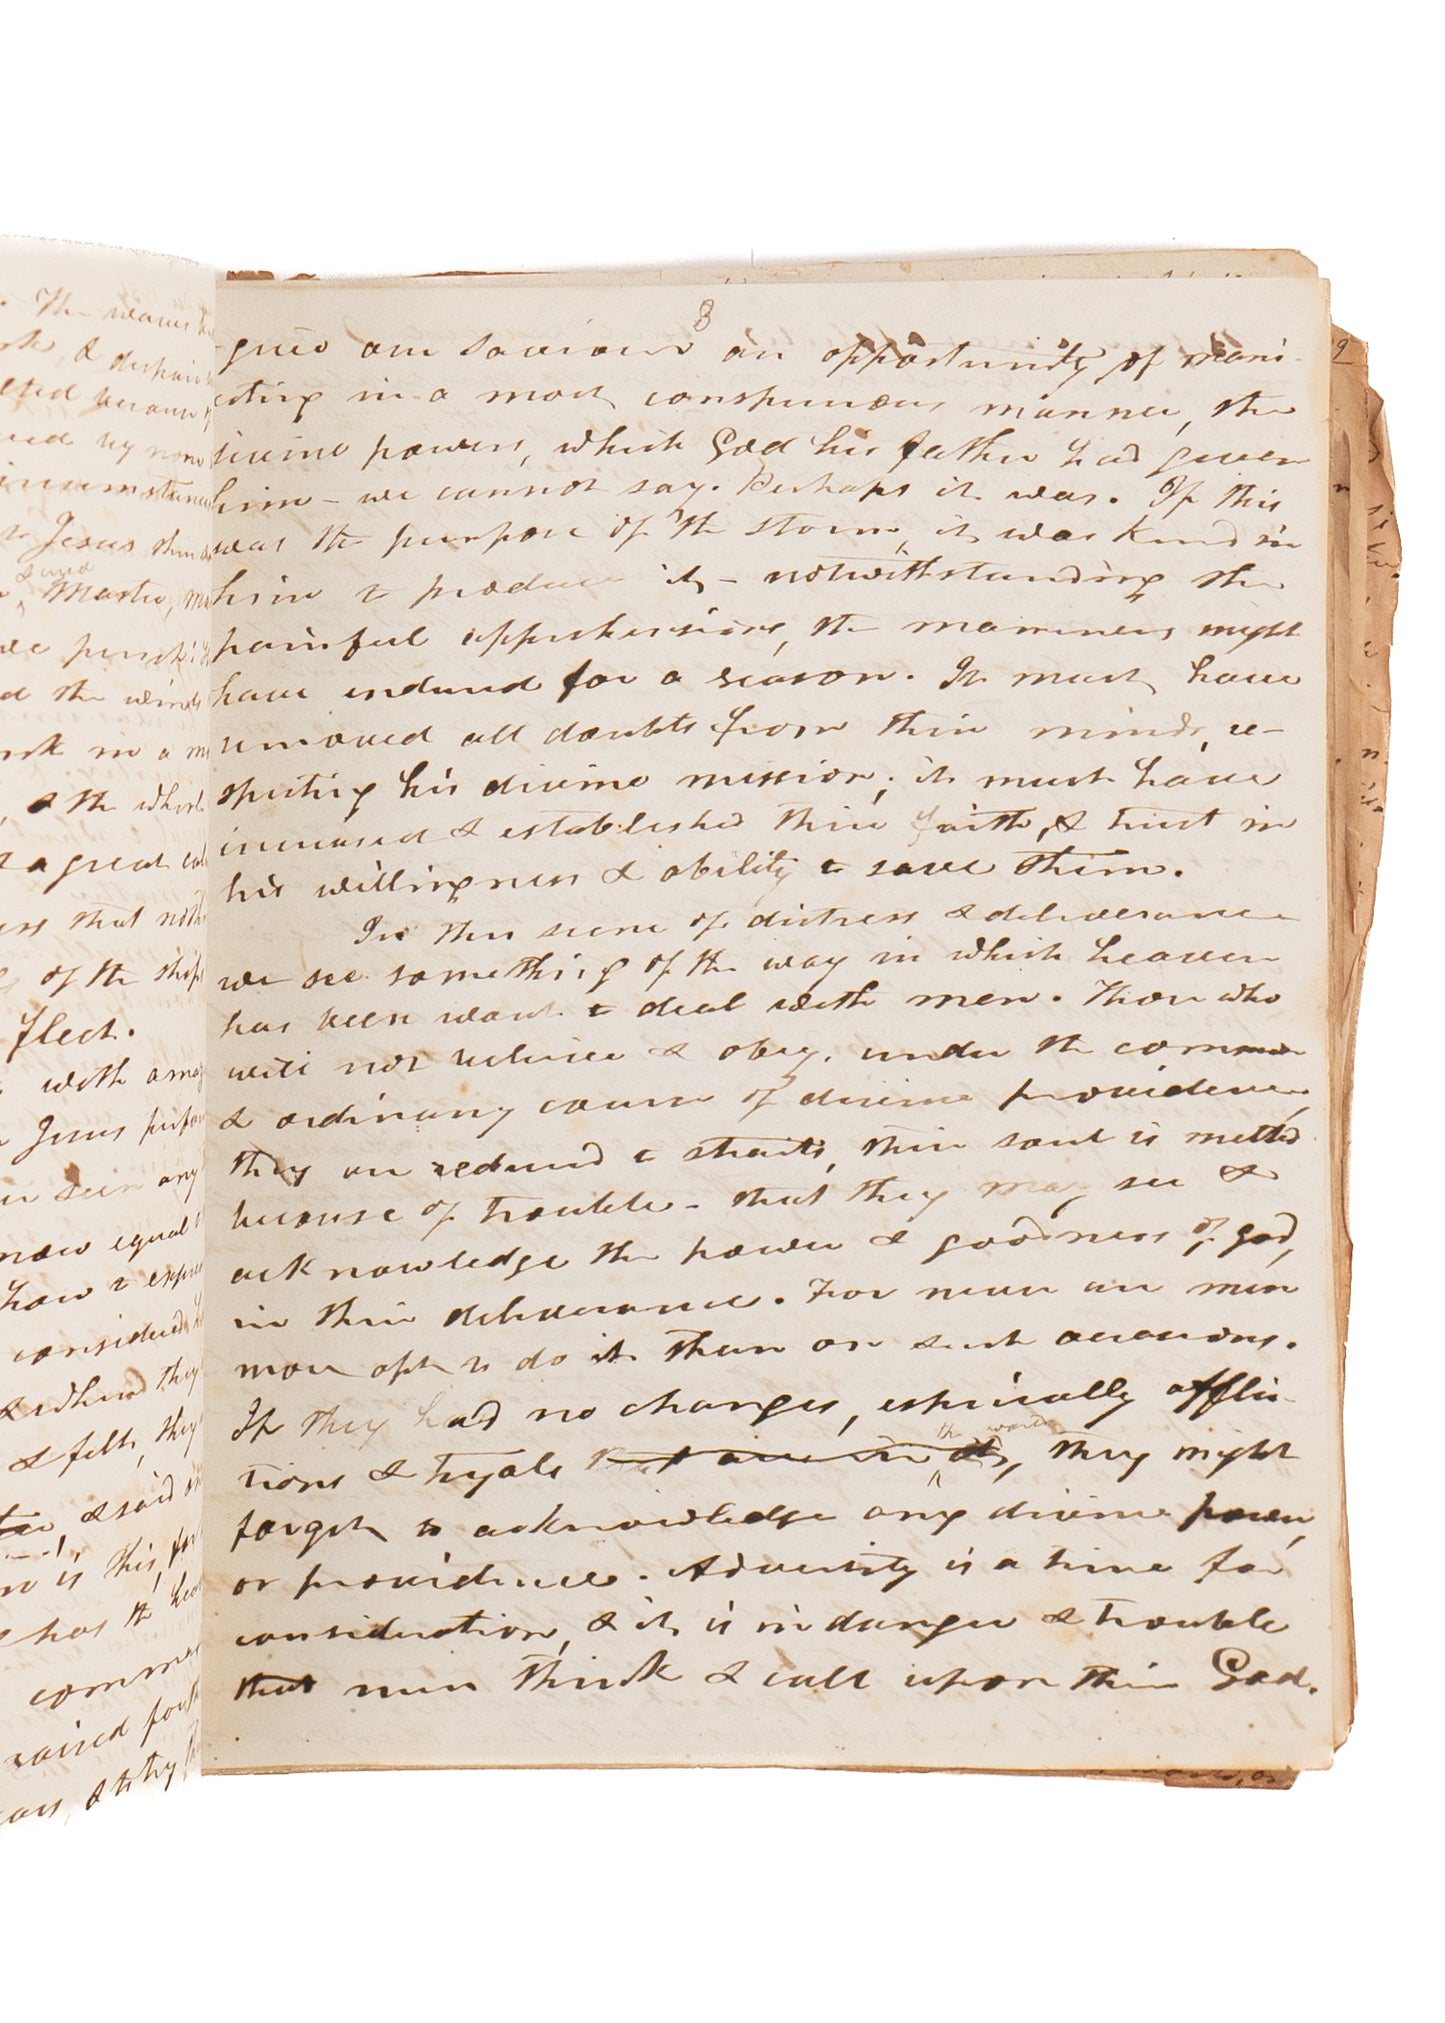 The waves
& despair
because
by none
circumstances
Jesus
& said
Master,
perish!
the winds
in a
& the whole
a great
that
of the ship
flect.
with
Jesus
seen any
now equal
how to express
considered
& when they
& felt, they
& said
is this, for
has the
comm
raised
& to try
3
give our Saviour an opportunity of mani-
esting in a most conspicuous manner, the
divine powers, which God his father had given
him - we cannot say. Perhaps it was. If this
was the purpose of the storm, it was kind in
him to produce it - notwithstanding the
painful apprehensions, the mariners might
have endured for a season. It must have
removed all doubts from their minds, re-
specting his divine mission; it must have
increased & established their faith, & trust in
his willingness & ability to save them.
In this scene of distress & deliverance
we see something of the way in which heaven
has been wont to deal with men. Those who
will not believe & obey, under the common
& ordinary course of divine providence,
they are reduced to straits, their soul is melted
because of trouble - that they may see &
acknowledge the power & goodness of God,
in their deliverance. For never are men
more apt to do it than on such occasions.
If they had no changes, especially afflic-
the world
tions & tryals, they might
forget to acknowledge any divine power,
or providence. Adversity is a time for
consideration, & it is in danger & trouble
that men think & call upon their God.
9